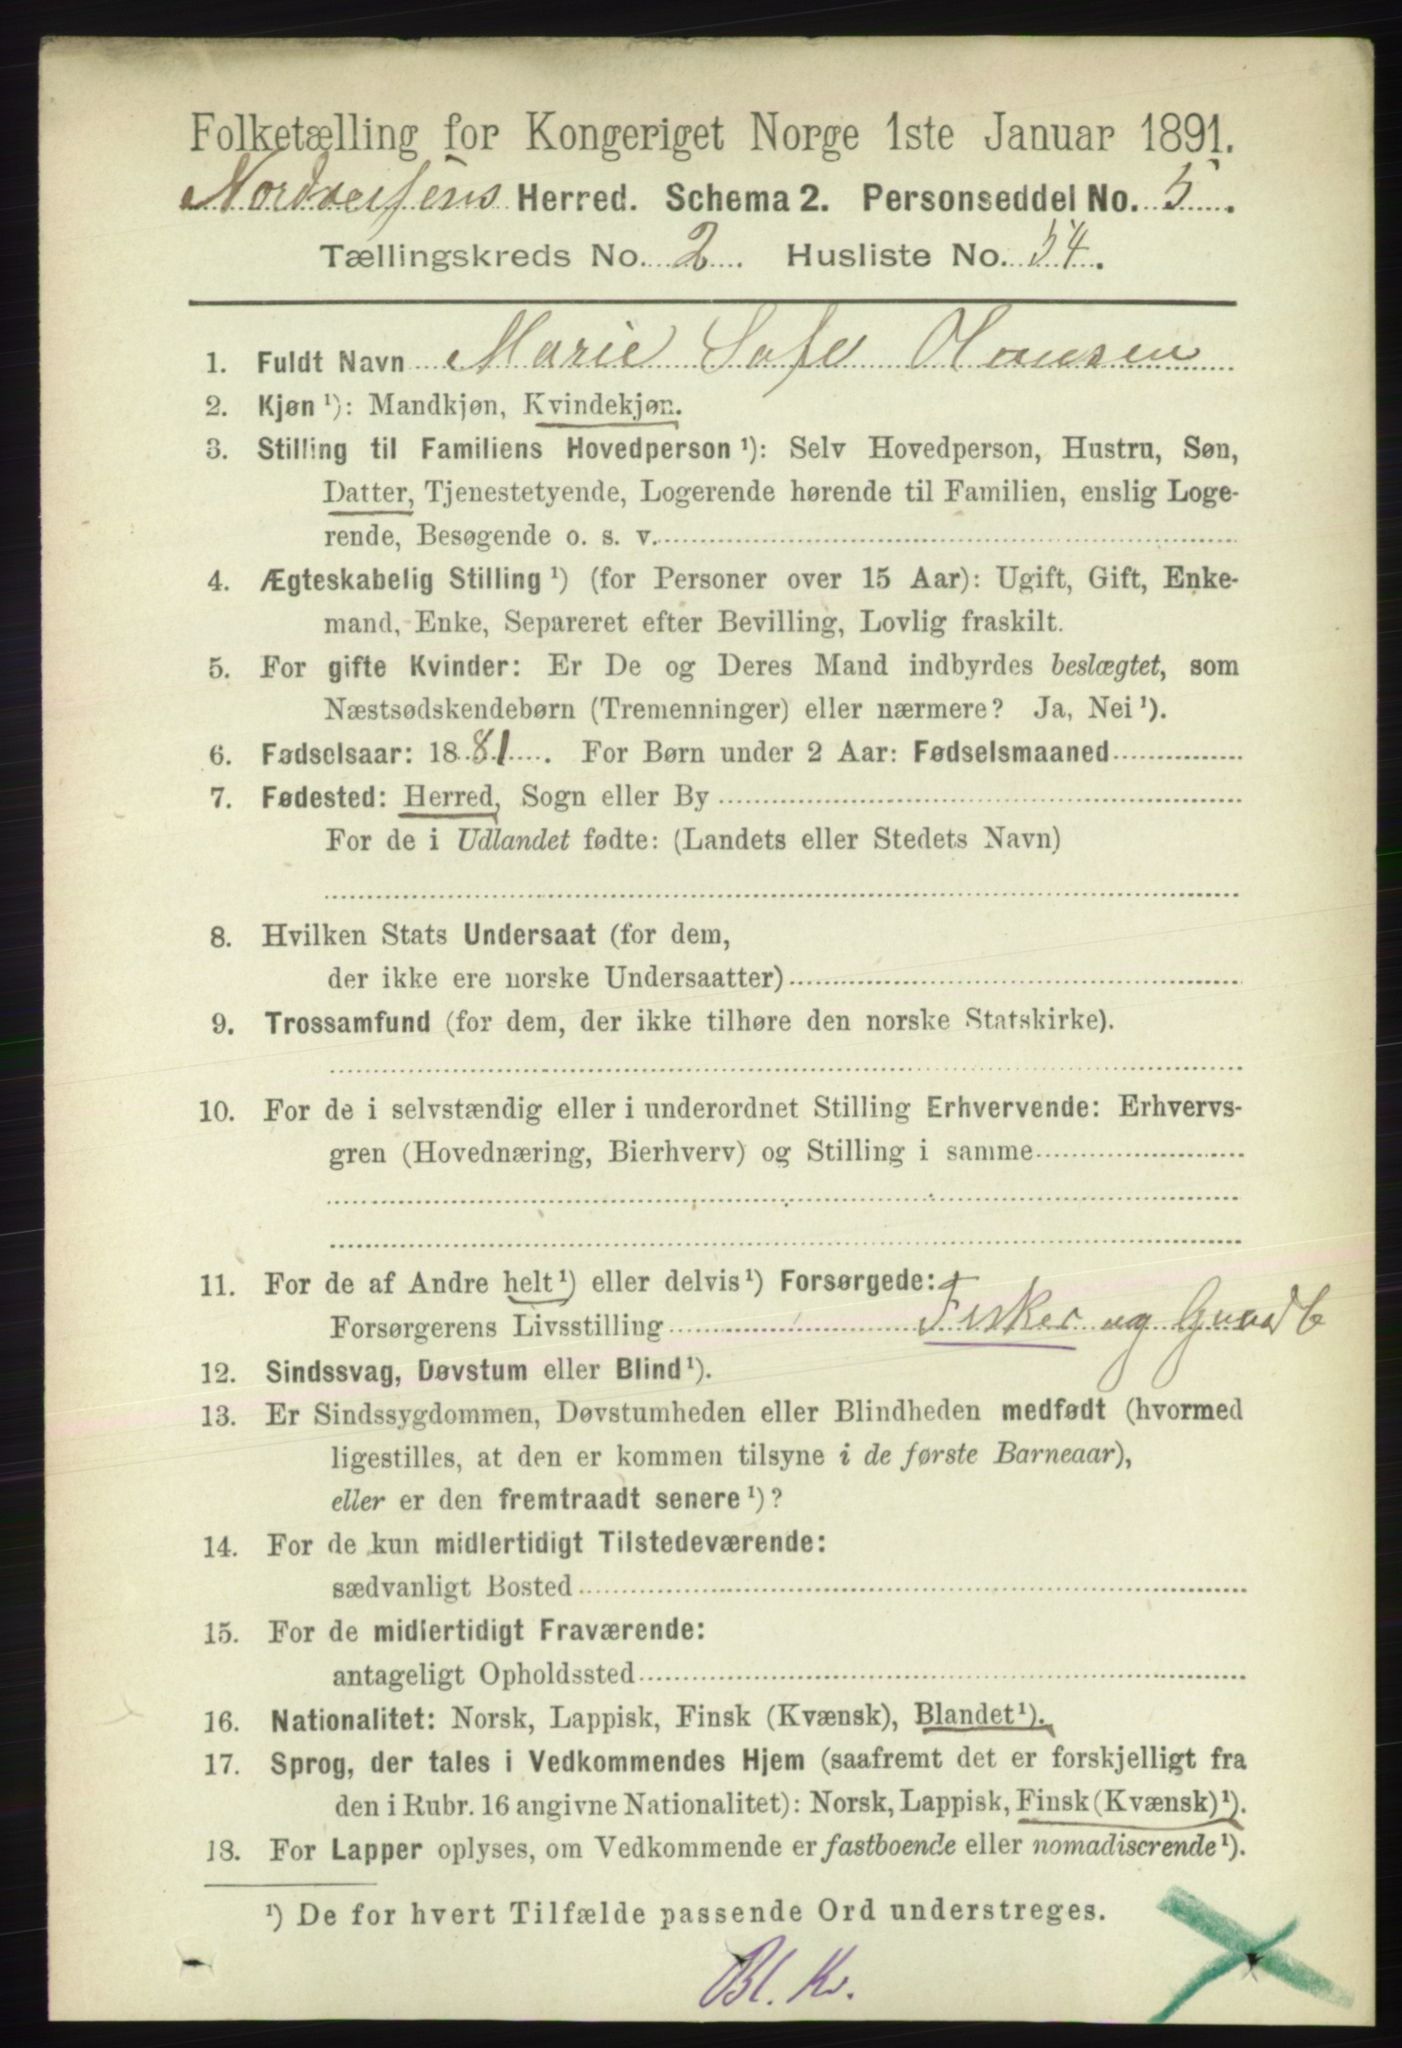 Folketælling for Kongeriget Norge 1ste Januar 1891.
Nordreisens Herred. Schema 2. Personseddel No. 5.
Tællingskreds No. 2. Husliste No. 54.
1. Fuldt Navn Marie Hansen
2. Kjøn ¹): Mandkjøn, Kvindekjøn.
3. Stilling til Familiens Hovedperson ¹): Selv Hovedperson, Hustru, Søn,
Datter, Tjenestetyende, Logerende hørende til Familien, enslig Loge-
rende, Besøgende o. s. v.
4. Ægteskabelig Stilling ¹) (for Personer over 15 Aar): Ugift, Gift, Enke-
mand, Enke, Separeret efter Bevilling, Lovlig fraskilt.
5. For gifte Kvinder: Er De og Deres Mand indbyrdes beslægtet, som
Næstsødskendebørn (Tremenninger) eller nærmere? Ja, Nei ¹).
6. Fødselsaar: 1881. For Børn under 2 Aar: Fødselsmaaned
7. Fødested: Herred, Sogn eller By
For de i Udlandet fødte: (Landets eller Stedets Navn)
8. Hvilken Stats Undersaat (for dem,
der ikke ere norske Undersaatter)
9. Trossamfund (for dem, der ikke tilhøre den norske Statskirke).
10. For de i selvstændig eller i underordnet Stilling Erhvervende: Erhvervs-
gren (Hovednæring, Bierhverv) og Stilling i samme
11. For de af Andre helt ¹) eller delvis ¹) Forsørgede:
Forsørgerens Livsstilling Fisker og
12. Sindssvag, Døvstum eller Blind ¹).
13. Er Sindssygdommen, Døvstumheden eller Blindheden medfødt (hvormed
ligestilles, at den er kommen tilsyne i de første Barneaar),
eller er den fremtraadt senere ¹)?
14. For de kun midlertidigt Tilstedeværende:
sædvanligt Bosted
15. For de midlertidigt Fraværende:
antageligt Opholdssted
16. Nationalitet: Norsk, Lappisk, Finsk (Kvænsk), Blandet ¹).
17. Sprog, der tales i Vedkommendes Hjem (saafremt det er forskjelligt fra
den i Rubr. 16 angivne Nationalitet): Norsk, Lappisk, Finsk (Kvænsk) ¹).
18. For Lapper oplyses, om Vedkommende er fastboende eller nomadiserende ¹).
¹) De for hvert Tilfælde passende Ord understreges.
Bl. Kv.